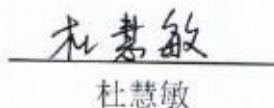 杜慧敏
杜慧敏